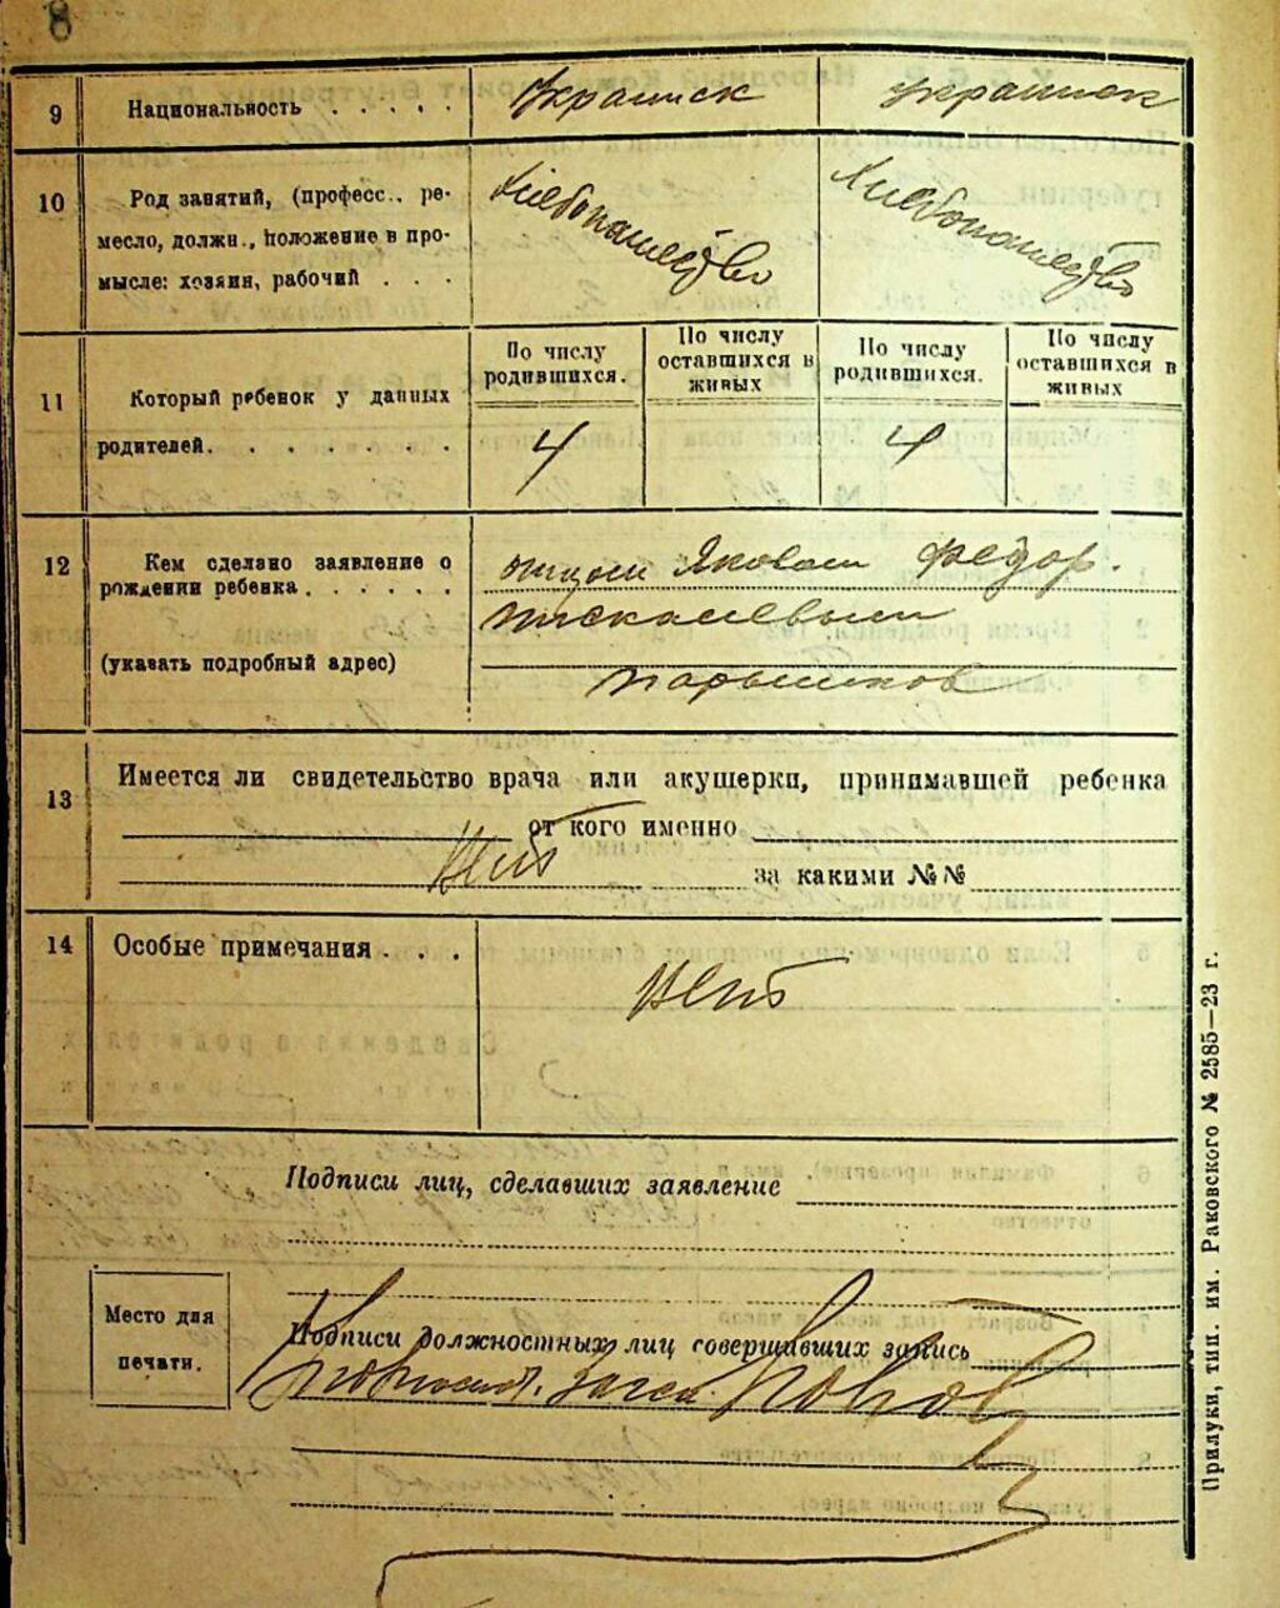 8
9 Национальность . . . . . Украинск Украинск
10 Род занятий, (професс., ре-
месло, должн., положение в про-
мысле: хозяин, рабочий . . .
Хлебопашество Хлебопашество
11 Который ребенок у данных
родителей. . . . . . .
По числу родившихся.
По числу оставшихся в живых
По числу родившихся.
По числу оставшихся в живых
4 4
12 Кем сделано заявление о
рождении ребенка . . . . . .
(указать подробный адрес)
отцом Яковом Федор.
13 Имеется ли свидетельство врача или акушерки, принимавшей ребенка
от кого именно
Нет за какими №№
14 Особые примечания . . . Нет
Подписи лиц, сделавших заявление
Место для
печати.
Подписи должностных лиц совершивших запись
Прилуки, тип. им. Раковского № 2585—23 г.